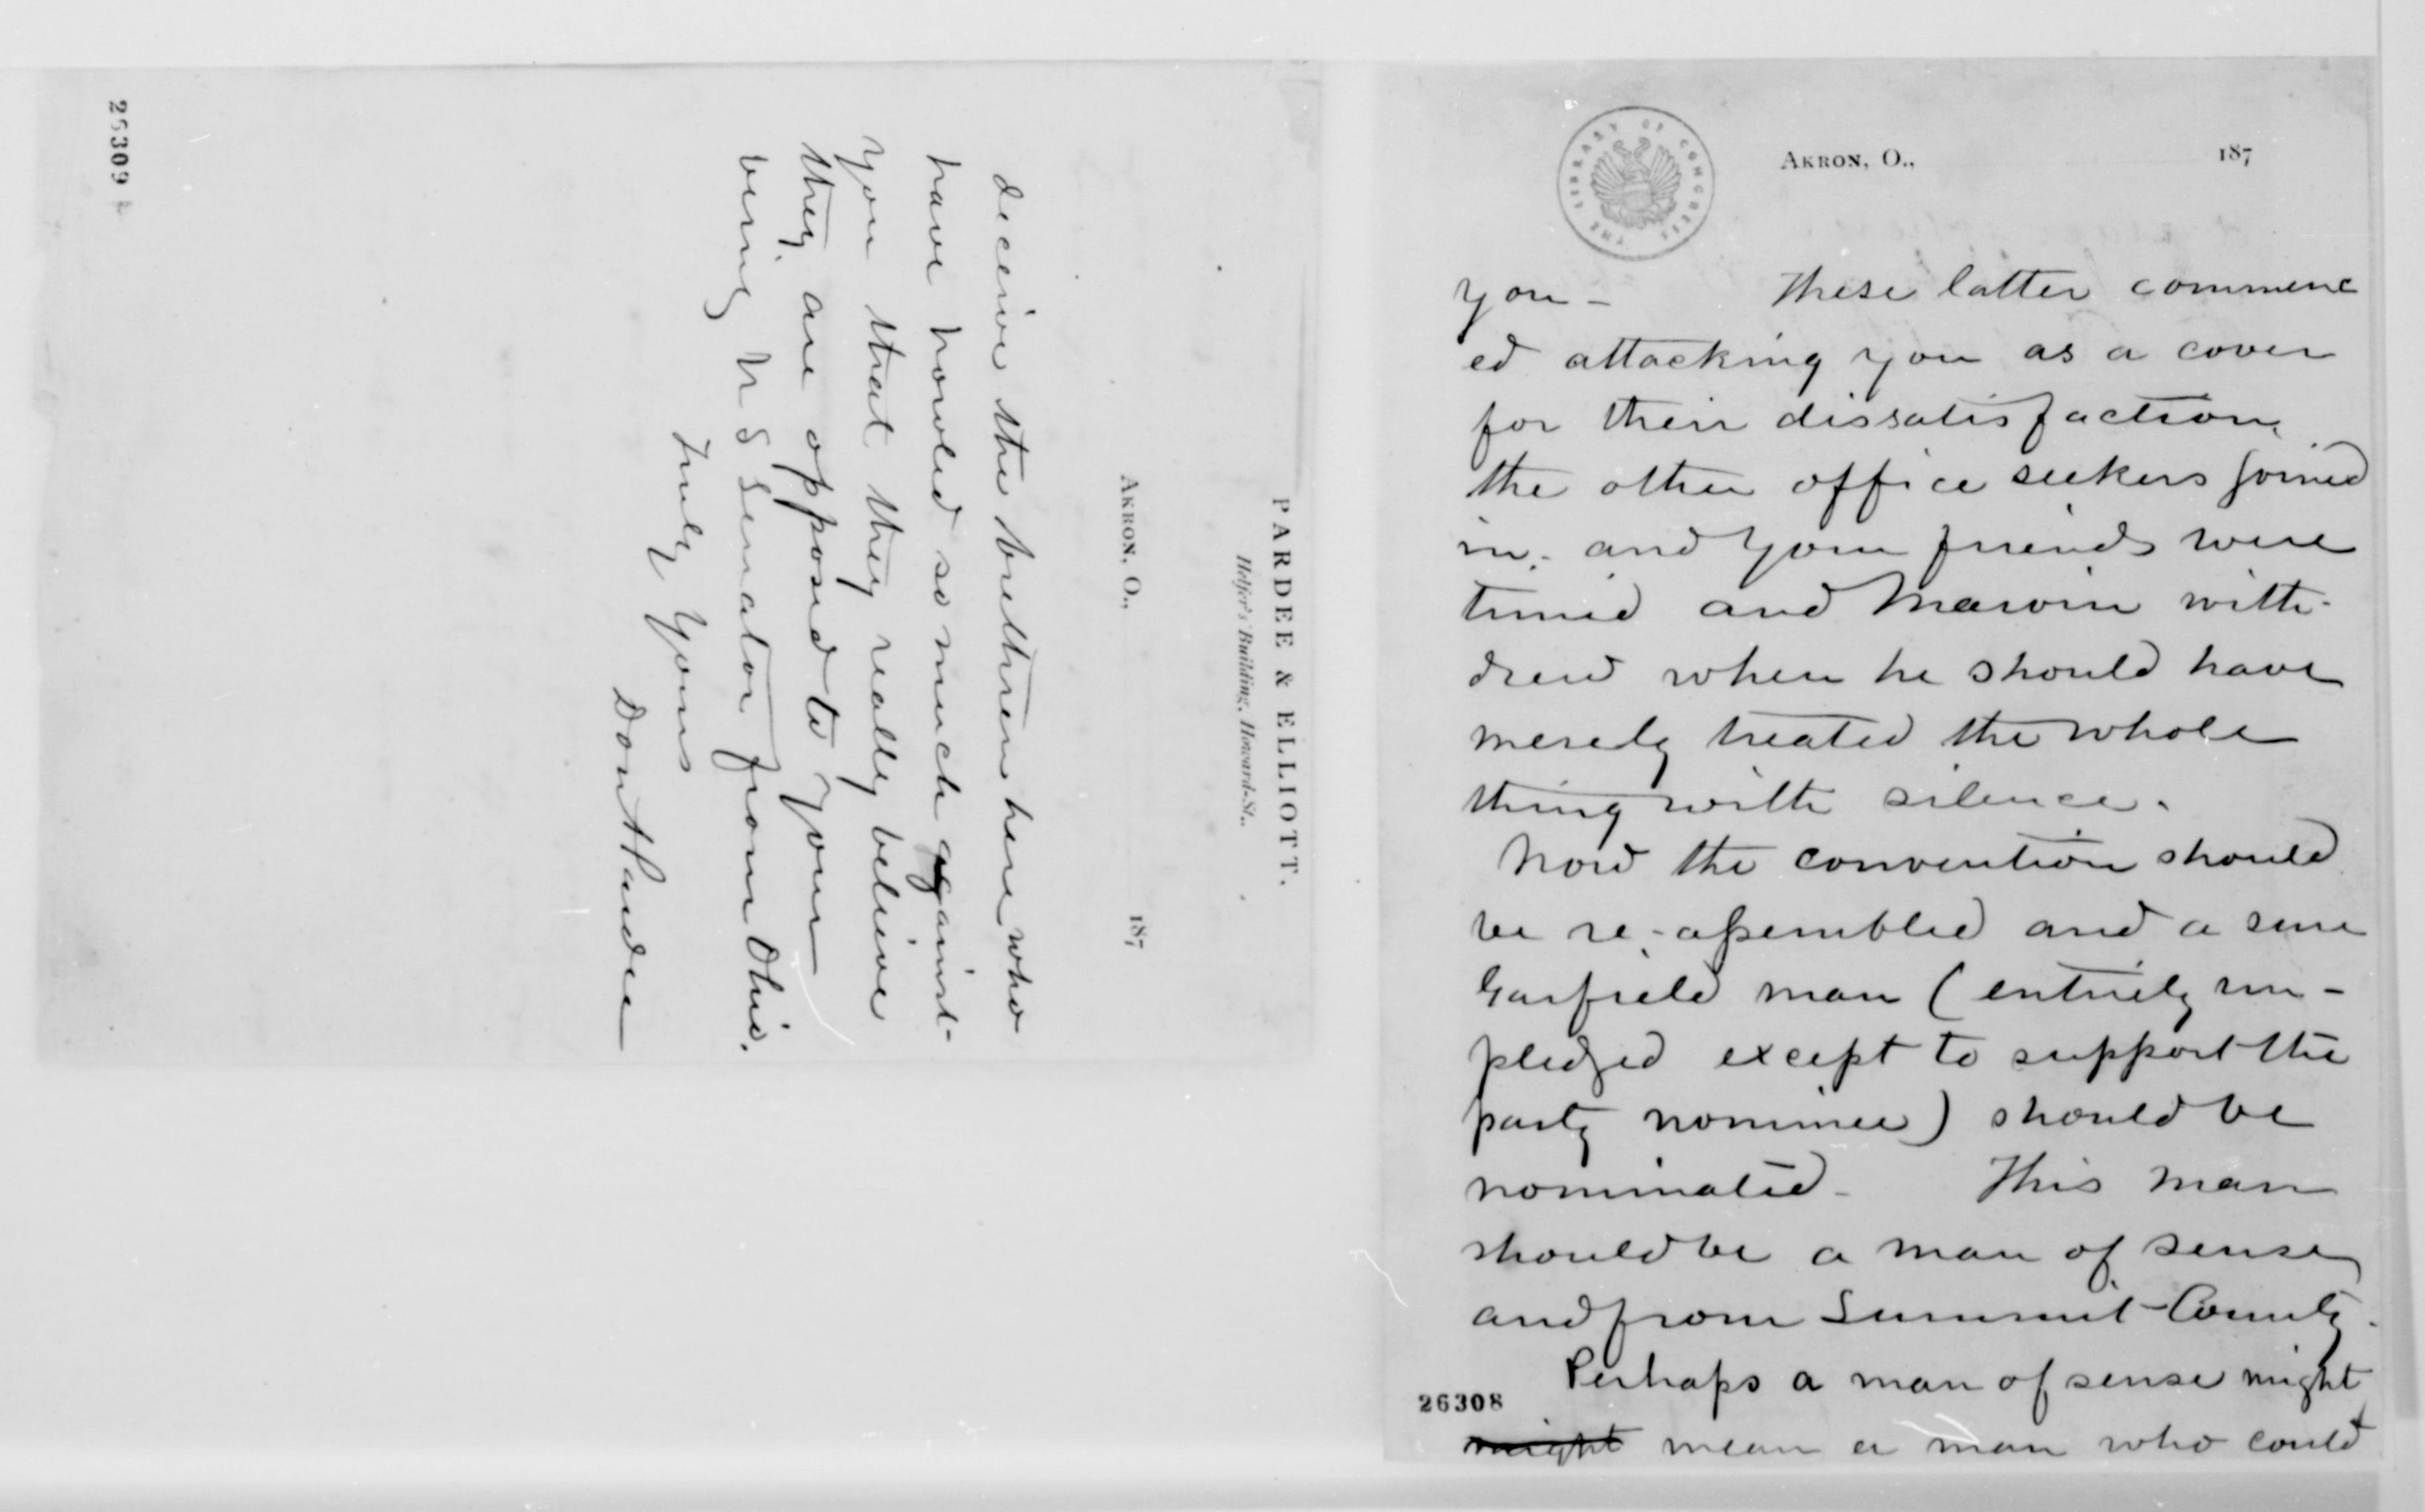 THE LIBRARY OF CONGRESS
AKRON, O., 187
you - These latter commenc
ed attacking you as a cover
for their dissatisfaction.
the other office seekers joined
in. and your friends were
timid and Marvin with-
drew when he should have
merely treated the whole
thing with silence.
Now the convention should
be re-assembled and a sure
Garfield man (entirely un-
pledged except to support the
party nominee) should be
nominated - This man
should be a man of sense
and from Summit County.
Perhaps a man of sense might
might mean a man who could
26308
PARDEE & ELLIOTT.
Helfer's Building, Howard-St.,
AKRON, O., 187
deceive the brethren here who
have howled so much against
you that they really believe
they are opposed to your
being U S Senator from Ohio.
Truly Yours
Don A Pardee
26309